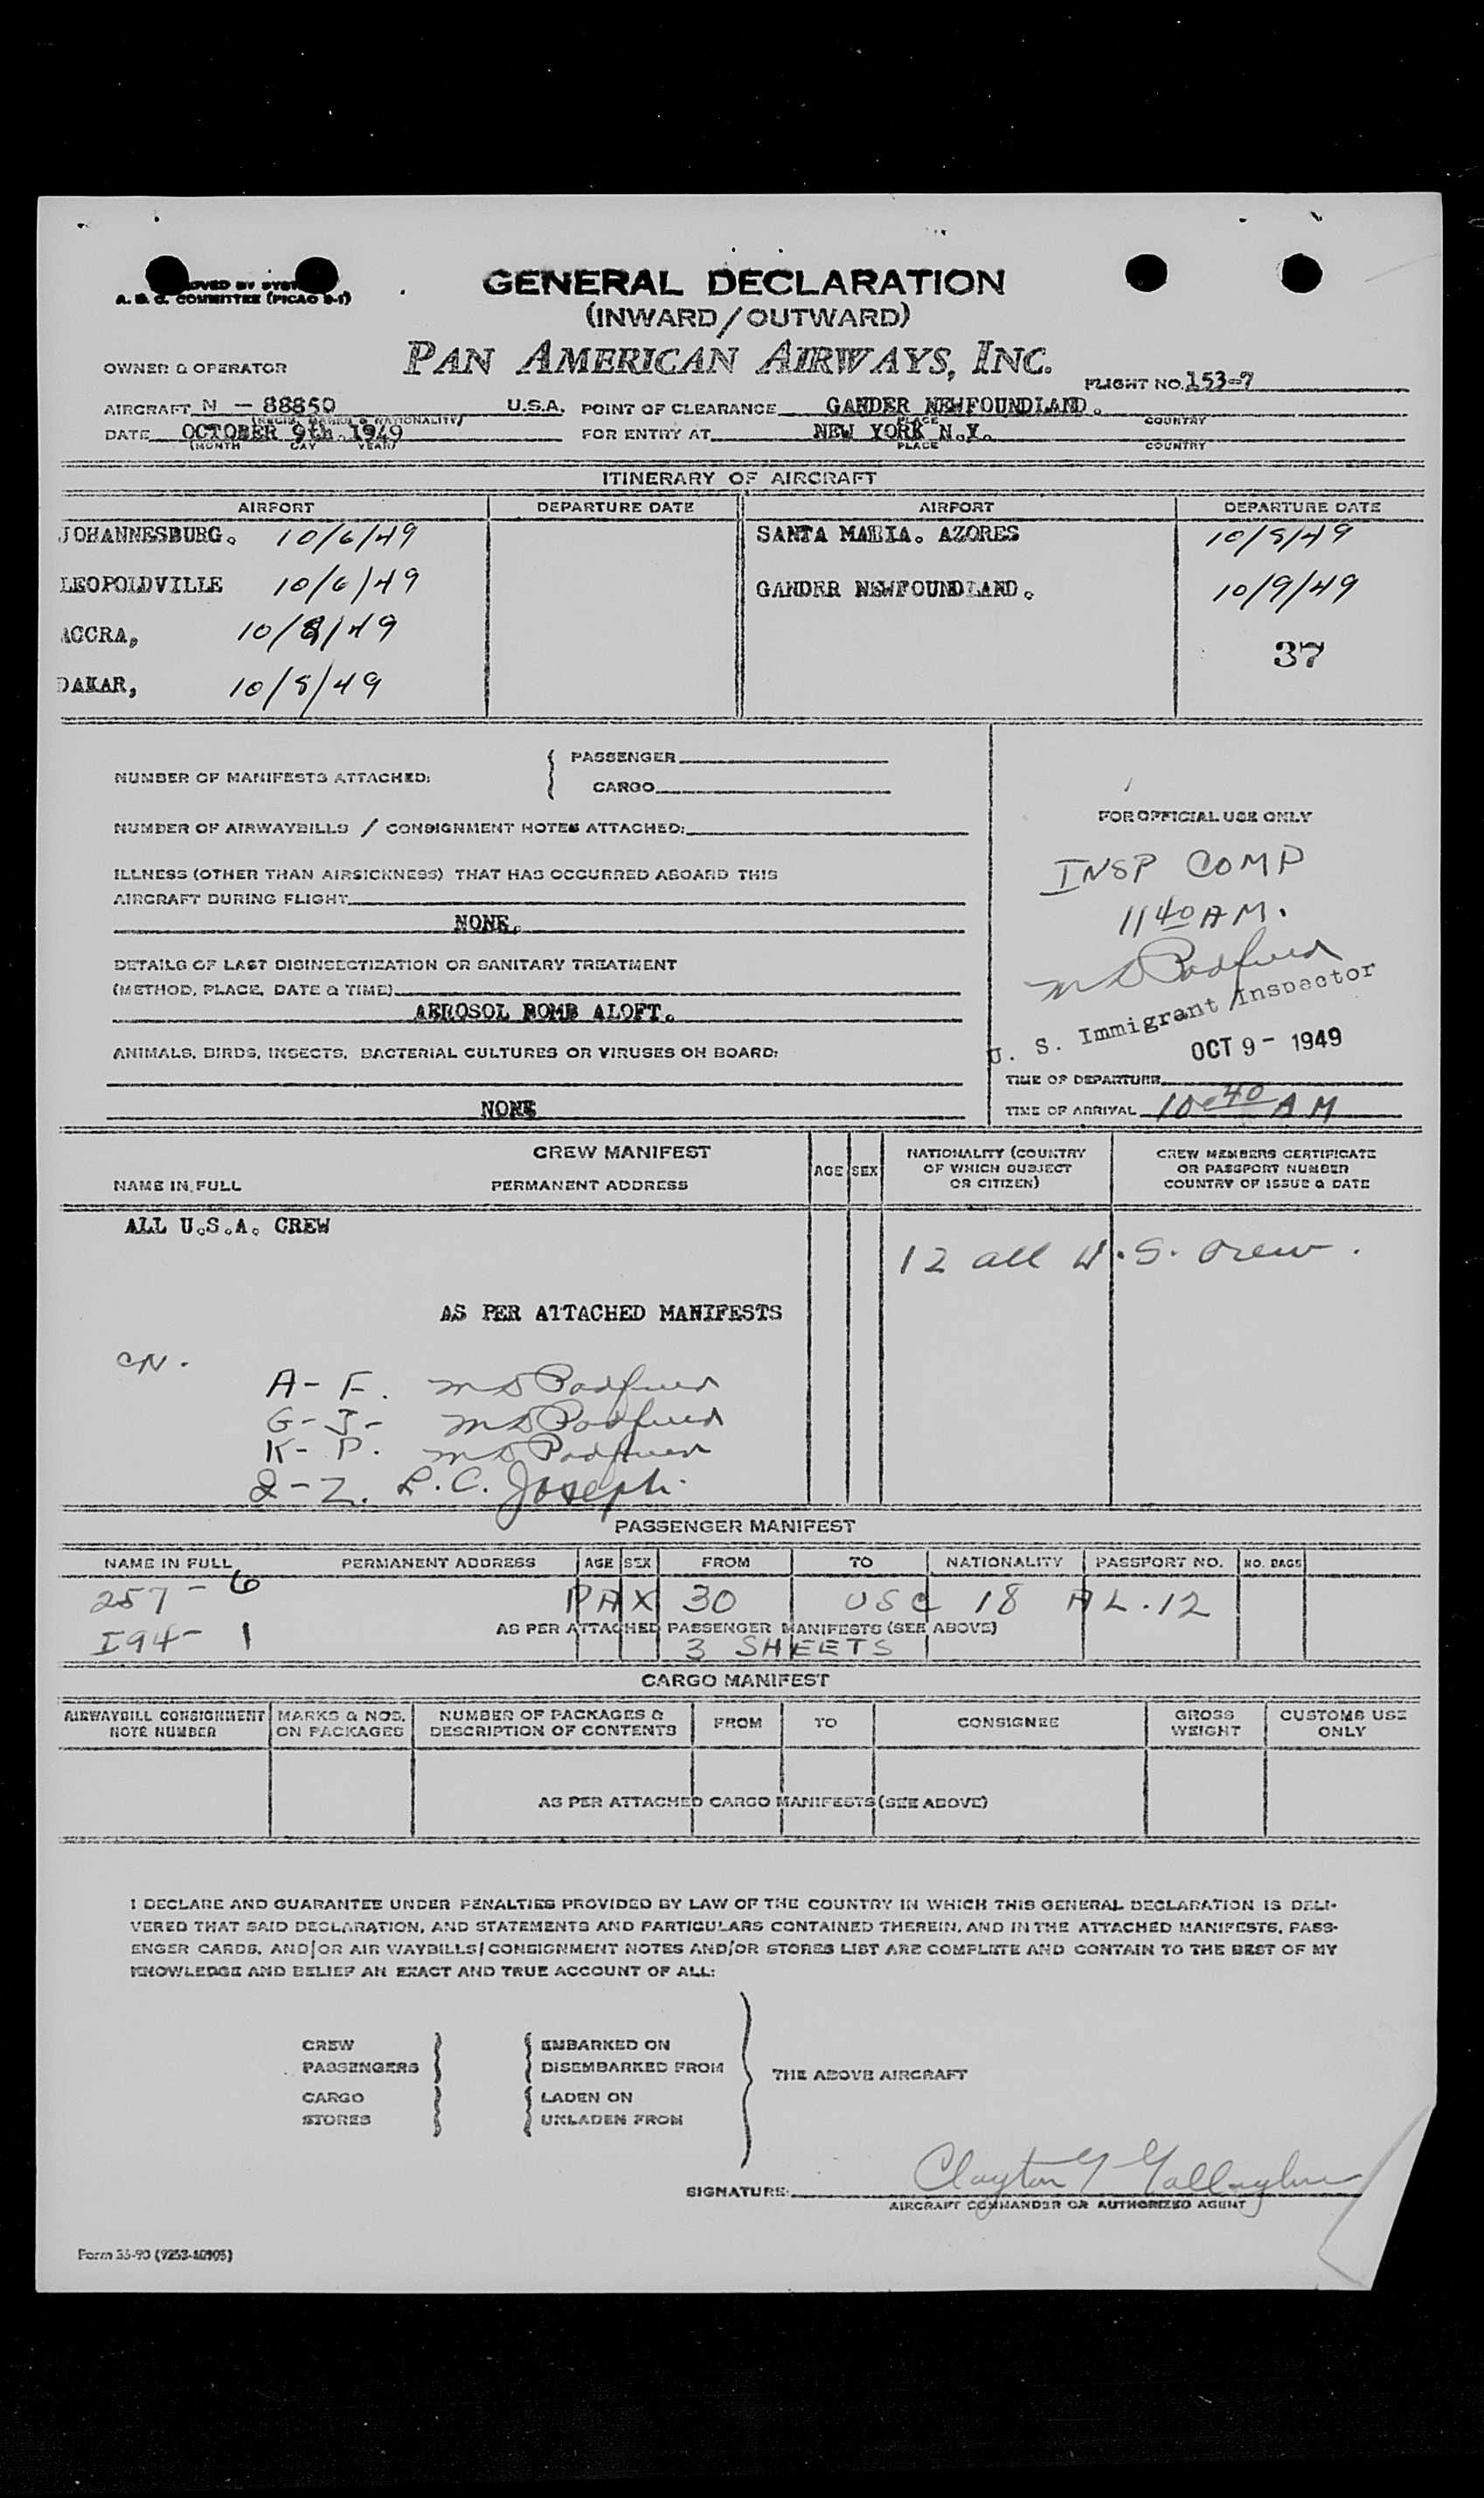 GENERAL DECLARATION
A. D. C. COMMITTEE (PICAO 9-1)
(INWARD/OUTWARD)
OWNER & OPERATOR PAN AMERICAN AIRWAYS, INC.
FLIGHT NO. 153-7
AIRCRAFT N - 88850 U.S.A. POINT OF CLEARANCE GANDER NEWFOUNDLAND.
(REGIS. MARKS & NATIONALITY) PLACE COUNTRY
DATE OCTOBER 9th. 1949 FOR ENTRY AT NEW YORK N.Y.
(MONTH DAY YEAR) PLACE COUNTRY
ITINERARY OF AIRCRAFT
AIRPORT DEPARTURE DATE AIRPORT DEPARTURE DATE
JOHANNESBURG. 10/6/49 SANTA MARIA. AZORES 10/8/49
LEOPOLDVILLE 10/6/49 GANDER NEWFOUNDLAND. 10/9/49
ACCRA, 10/8/49
37
DAKAR, 10/8/49
NUMBER OF MANIFESTS ATTACHED: PASSENGER
CARGO
NUMBER OF AIRWAYBILLS / CONSIGNMENT NOTES ATTACHED:
FOR OFFICIAL USE ONLY
ILLNESS (OTHER THAN AIRSICKNESS) THAT HAS OCCURRED ABOARD THIS
AIRCRAFT DURING FLIGHT
NONE.
INSP COMP
1140 AM.
DETAILS OF LAST DISINSECTIZATION OR SANITARY TREATMENT
(METHOD, PLACE, DATE & TIME)
AEROSOL BOMB ALOFT.
M S Padfield
U. S. Immigrant Inspector
OCT 9 - 1949
ANIMALS, BIRDS, INSECTS, BACTERIAL CULTURES OR VIRUSES ON BOARD:
NONE
TIME OF DEPARTURE
TIME OF ARRIVAL 10-40 AM
CREW MANIFEST
NAME IN FULL PERMANENT ADDRESS AGE SEX NATIONALITY (COUNTRY OF WHICH SUBJECT OR CITIZEN) CREW MEMBERS CERTIFICATE OR PASSPORT NUMBER COUNTRY OF ISSUE & DATE
ALL U.S.A. CREW
12 all U.S. crew.
AS PER ATTACHED MANIFESTS
CN.
A-F. M S Padfield
G-J- M S Padfield
K-P. M S Padfield
Q-Z. L.C. Joseph.
PASSENGER MANIFEST
NAME IN FULL PERMANENT ADDRESS AGE SEX FROM TO NATIONALITY PASSPORT NO. NO. BAGS
257 - 6 PAX 30 USC 18 AL. 12
I94 - 1 AS PER ATTACHED PASSENGER MANIFESTS (SEE ABOVE)
3 SHEETS
CARGO MANIFEST
AIRWAYBILL CONSIGNMENT NOTE NUMBER MARKS & NOS. ON PACKAGES NUMBER OF PACKAGES & DESCRIPTION OF CONTENTS FROM TO CONSIGNEE GROSS WEIGHT CUSTOMS USE ONLY
AS PER ATTACHED CARGO MANIFESTS (SEE ABOVE)
I DECLARE AND GUARANTEE UNDER PENALTIES PROVIDED BY LAW OF THE COUNTRY IN WHICH THIS GENERAL DECLARATION IS DELI-
VERED THAT SAID DECLARATION, AND STATEMENTS AND PARTICULARS CONTAINED THEREIN, AND IN THE ATTACHED MANIFESTS, PASS-
ENGER CARDS, AND/OR AIR WAYBILLS/CONSIGNMENT NOTES AND/OR STORES LIST ARE COMPLETE AND CONTAIN TO THE BEST OF MY
KNOWLEDGE AND BELIEF AN EXACT AND TRUE ACCOUNT OF ALL:
CREW EMBARKED ON
PASSENGERS DISEMBARKED FROM
THE ABOVE AIRCRAFT
CARGO LADEN ON
STORES UNLADEN FROM
SIGNATURE: Clayton Y Gallagher
AIRCRAFT COMMANDER OR AUTHORIZED AGENT
Form 35-90 (9253-40905)